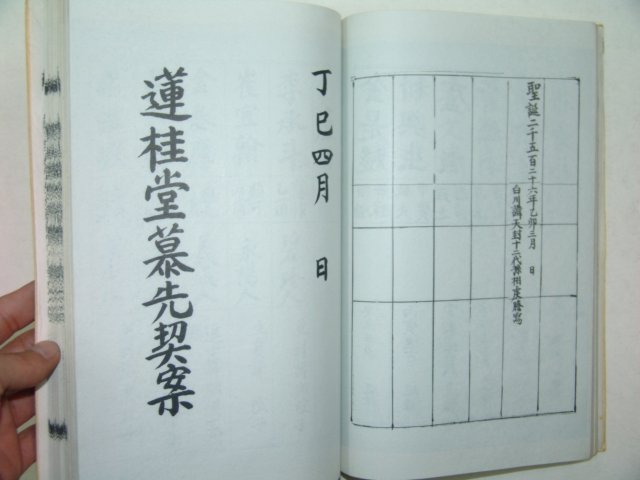 聖誕二千五百二十六年乙卯三月 日
白川 天封十 代 相度謄寫
丁巳四月 日
蓮桂堂慕先契案